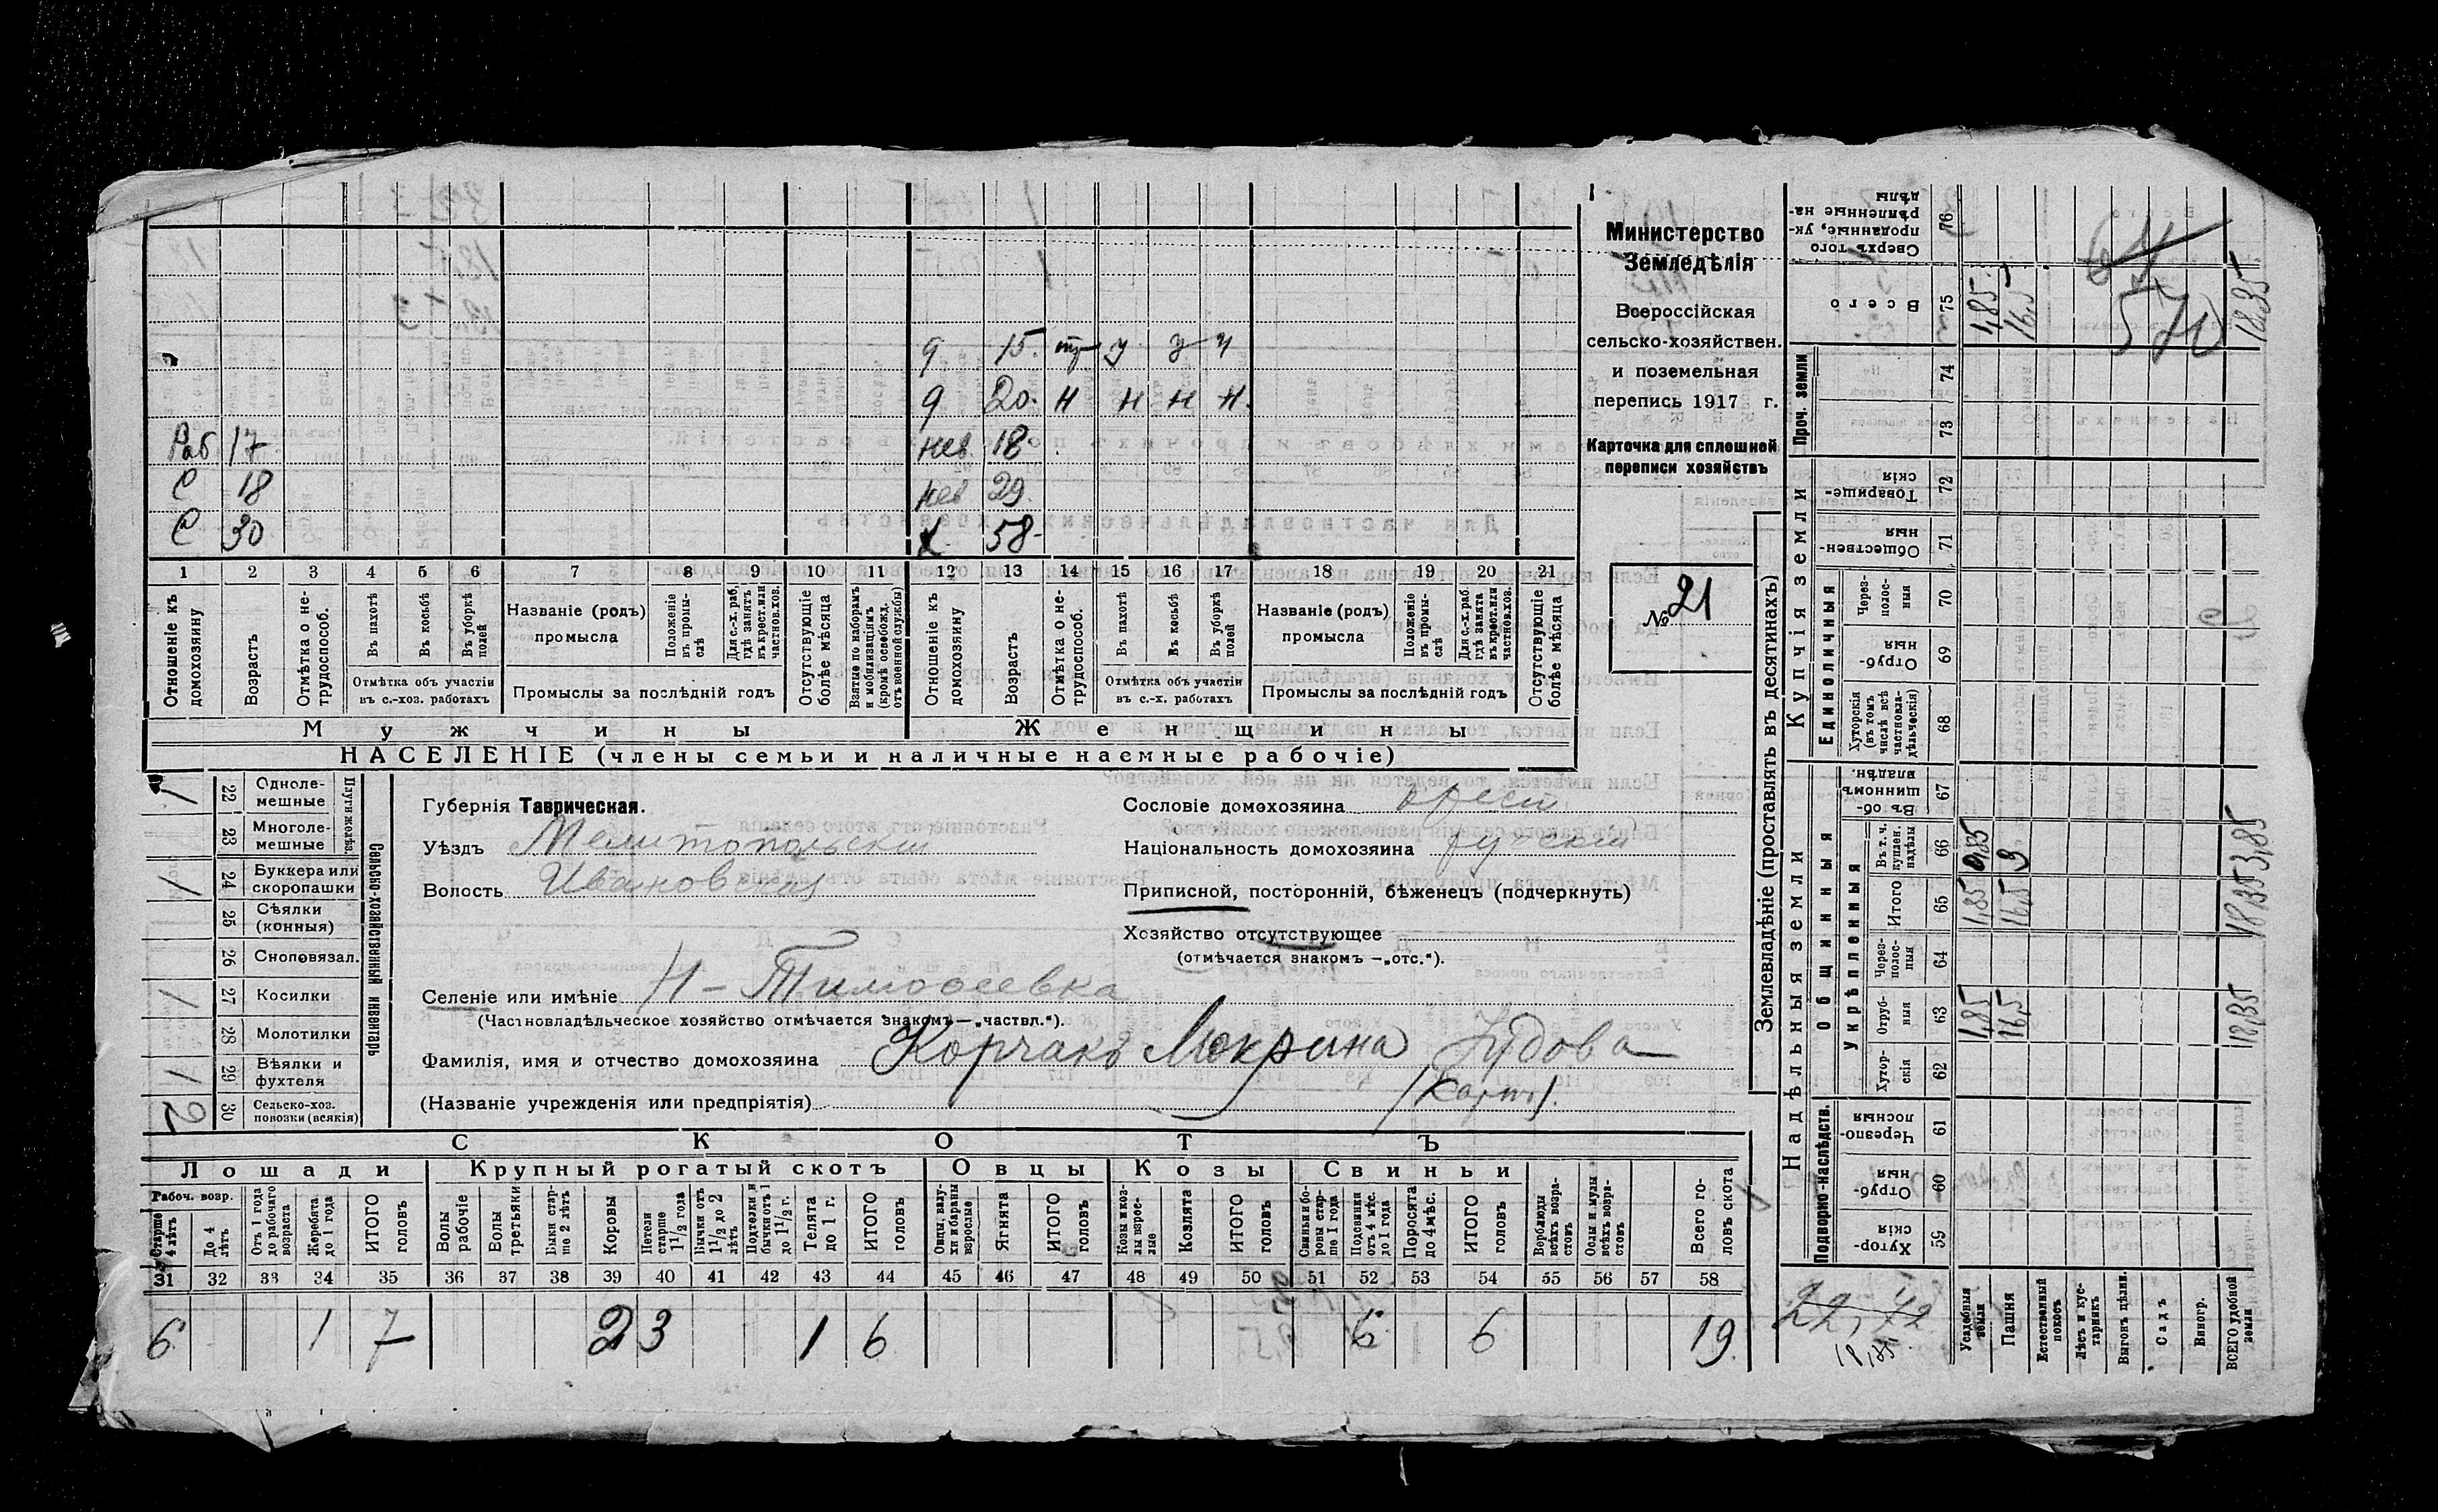 Министерство
Земледѣлія
Всероссійская
сельско-хозяйствен.
и поземельная
перепись 1917 г.
Карточка для сплошной
переписи хозяйствъ
№ 21
д 15. у
д 20. н н н н.
Раб 17 нев. 18
С 18 нев 29.
С 30 Х. 58.
1 2 3 4 5 6 7 8 9 10 11 12 13 14 15 16 17 18 19 20 21
Отношеніе къ домохозяину
Возрастъ
Отмѣтка о нетрудоспособ.
Въ пахотѣ
Въ косьбѣ
Въ уборкѣ полей
Отмѣтка объ участіи въ с.-хоз. работахъ
Названіе (родъ) промысла
Положеніе въ промыслѣ
Для с.-х. раб, гдѣ занятъ въ крест. или частнов. хоз.
Промыслы за послѣдній годъ
Отсутствующіе болѣе мѣсяца
Взятые по наборамъ и мобилизаціямъ (кромѣ освобожд. отъ военной службы)
Отношеніе къ домохозяину
Возрастъ
Отмѣтка о нетрудоспособ.
Въ пахотѣ
Въ косьбѣ
Въ уборкѣ полей
Отмѣтка объ участіи въ с.-х. работахъ
Названіе (родъ) промысла
Положеніе въ промыслѣ
Для с.-х. раб. гдѣ занята въ крест. или частнов. хоз.
Промыслы за послѣдній годъ
Отсутствующіе болѣе мѣсяца
Мужчины Женщины
НАСЕЛЕНІЕ (члены семьи и наличные наемные рабочіе)
Сельско-хозяйственный инвентарь
Плуги желѣз.
22 Однолемешные 1
23 Многолемешные
24 Буккера или скоропашки 1
25 Сѣялки (конныя)
26 Сноповязал.
27 Косилки 1
28 Молотилки
29 Вѣялки и фухтеля 1
30 Сельско-хоз. повозки (всякія) 2
Губернія Таврическая.
Уѣздъ Мелитопольскій
Волость Ивановская
Сословіе домохозяина крест
Національность домохозяина русскій
Приписной, посторонній, бѣженецъ (подчеркнуть)
Хозяйство отсутствующее
(отмѣчается знакомъ —„отс.“).
Селеніе или имѣніе Н-Тимофеевка
(Частновладѣльческое хозяйство отмѣчается знакомъ—„частвл.“).
Фамилія, имя и отчество домохозяина Корчакъ Мокрина
(Названіе учрежденія или предпріятія)
СКОТЪ
Лошади Крупный рогатый скотъ Овцы Козы Свиньи
Рабоч. возр.
Старше 4 лѣтъ
До 4 лѣтъ
Отъ 1 года до рабочаго возраста
Жеребята до 1 года
ИТОГО головъ
Волы рабочіе
Волы третьяки
Быки старше 2 лѣтъ
Коровы
Нетели старше 1 1/2 года
Бычки отъ 1 1/2 до 2 лѣтъ
Подтелки и бычки отъ 1 до 1 1/2 г.
Телята до 1 г.
ИТОГО головъ
Овцы, валухи и бараны взрослые
Ягнята
ИТОГО головъ
Козы и козлы взрослые
Козлята
ИТОГО головъ
Свиньи и боровы старше 1 года
Подсвинки отъ 4 мѣс. до 1 года
Поросята до 4 мѣс.
ИТОГО головъ
Верблюды всѣхъ возрастовъ
Ослы и мулы всѣхъ возрастовъ
Всего головъ скота
31 32 33 34 35 36 37 38 39 40 41 42 43 44 45 46 47 48 49 50 51 52 53 54 55 56 57 58
6 1 7 2 3 1 6 6 6 19.
Землевладѣніе (проставлять въ десятинахъ)
Надѣльныя земли
Купчія земли
Проч. земли
Подворно-наслѣдств.
Общинныя
Укрѣпленныя
Единоличныя
Сверхъ того проданные, укрѣпленные надѣлы 76
Всего 75 1,85 16,5 18,35
570
74
73
Товарищескія 72
Общественныя 71
Черезполосныя 70
Отрубныя 69
Хуторскія (въ томъ числѣ всѣ частновладѣльческія) 68
Въ общинномъ владѣн. 67
Въ т. ч. куплен. надѣлы 66 0,85 3 3,85
Итого 65 1,85 16,5 18,35
Черезполосныя 64
Отрубныя 63 1,85 16,5 18,35
Хуторскія 62
Черезполосныя 61
Отрубныя 60
Хуторскія 59
Усадебныя земли
Пашня
Естественный покосъ
Лѣсъ и кустарникъ
Выгонъ цѣлин.
Садъ
Виногр.
ВСЕГО удобной земли
22,72
18,35